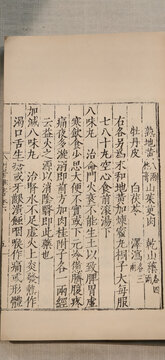 熟地黃 山茱萸肉 乾山藥
牡丹皮 白茯苓 澤瀉
右各另為末和地黃加煉蜜丸桐子大每服
七八十丸空心食前滾湯下
八味丸 治命門火衰不能生土以致脾胃虛
寒飲食少思大便不實或下元冷憊臍腹疼
痛夜多漩溺即前方加肉桂附子各一兩經
云益火之源以消陰翳即此藥也
加減八味丸 治腎水不足虛火上炎發熱作
渴口舌生瘡或牙齦潰爛咽喉作痛或形體